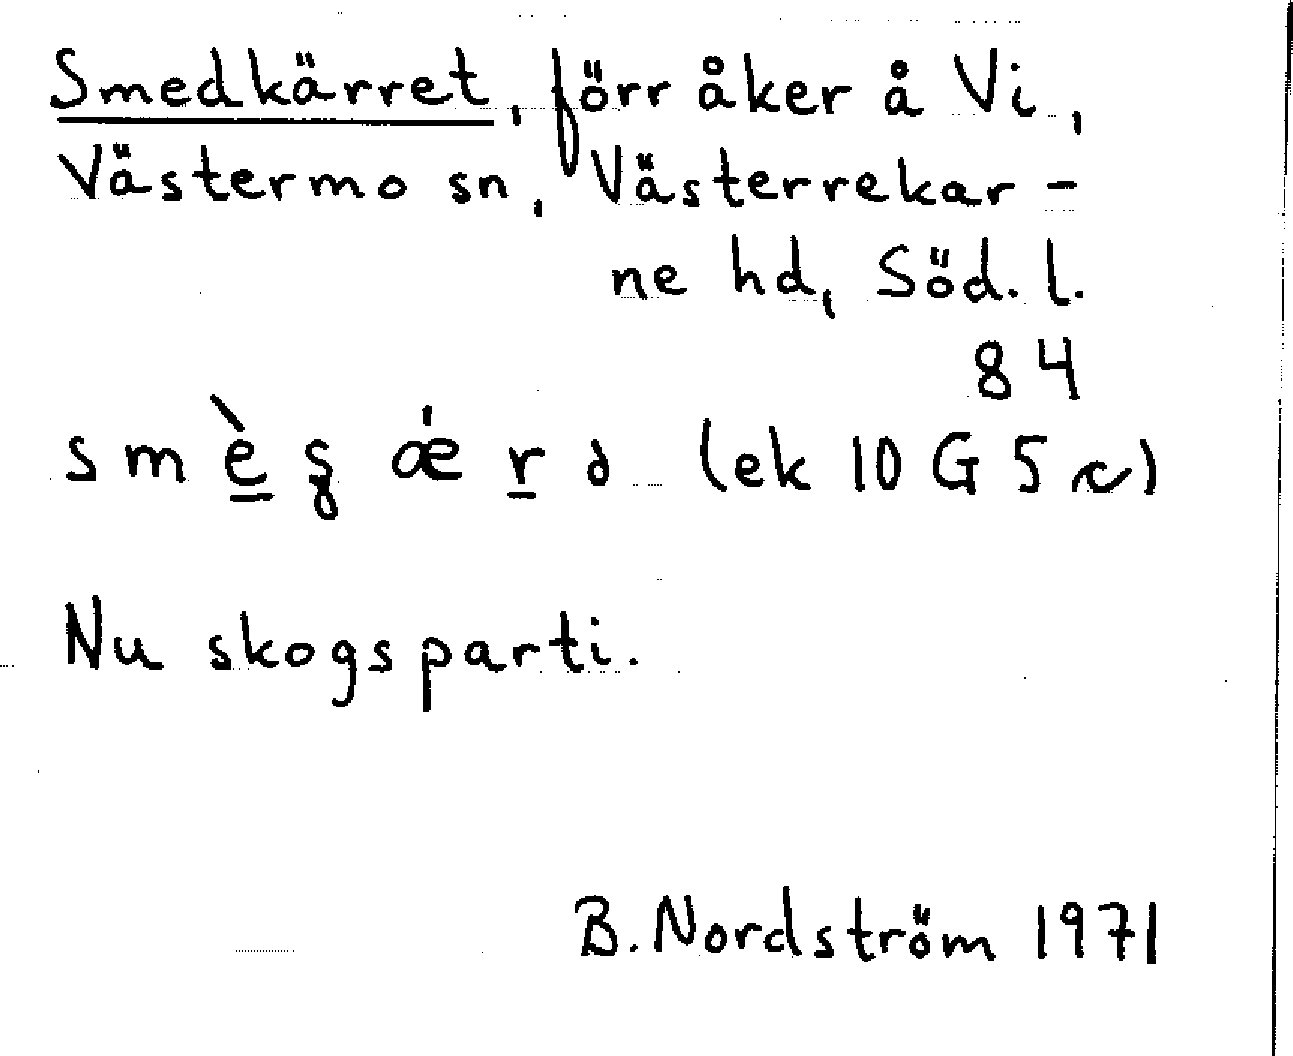 Smedkärret, förr åker å Vi,
Västermo sn, Västerrekar-
ne hd, Söd. l.
84
(ek 10 G 5 c)
Nu skogsparti.
B. Nordström 1971